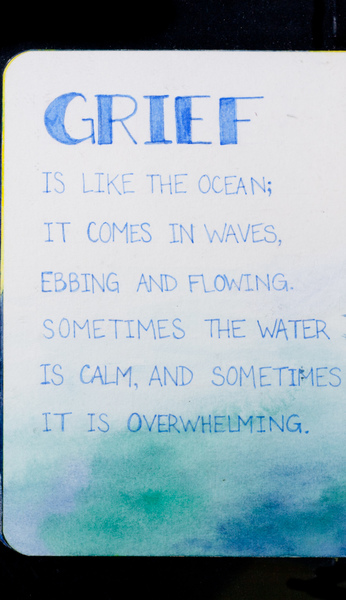 GRIEF
IS LIKE THE OCEAN;
IT COMES IN WAVES,
EBBING AND FLOWING.
SOMETIMES THE WATER
IS CALM, AND SOMETIMES
IT IS OVERWHELMING.